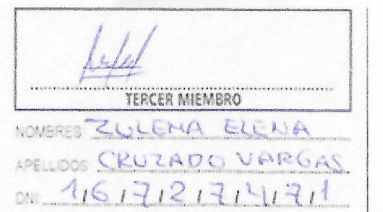 TERCER MIEMBRO
NOMBRES ZULEMA ELENA
APELLIDOS CRUZADO VARGAS
DNI 16727471